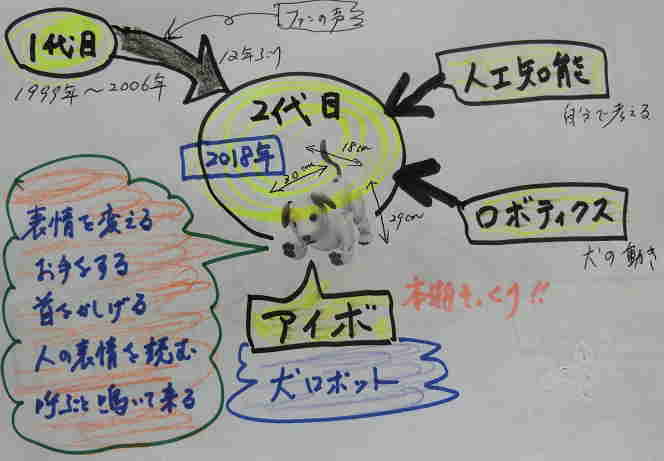 1代目
1999年～2006年
ファンの声
12年ぶり
2代目
2018年
18cm
30cm
29cm
人工知能
自分で考える
ロボティクス
犬の動き
表情を変える
お手をする
首をかしげる
人の表情を読む
呼ぶと鳴いて来る
アイボ
犬ロボット
本物そっくり!!